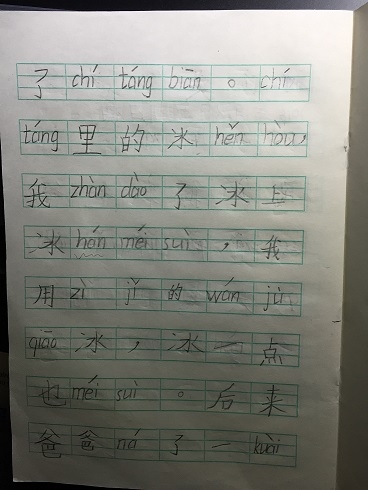 了chí táng biān。chí
táng里的冰hěn hòu，
我zhàn dào了冰上
冰hán méi suì，我
用zì jǐ的wán jù
qiāo冰，冰一点
也méi suì。后来
爸爸ná了一kuài